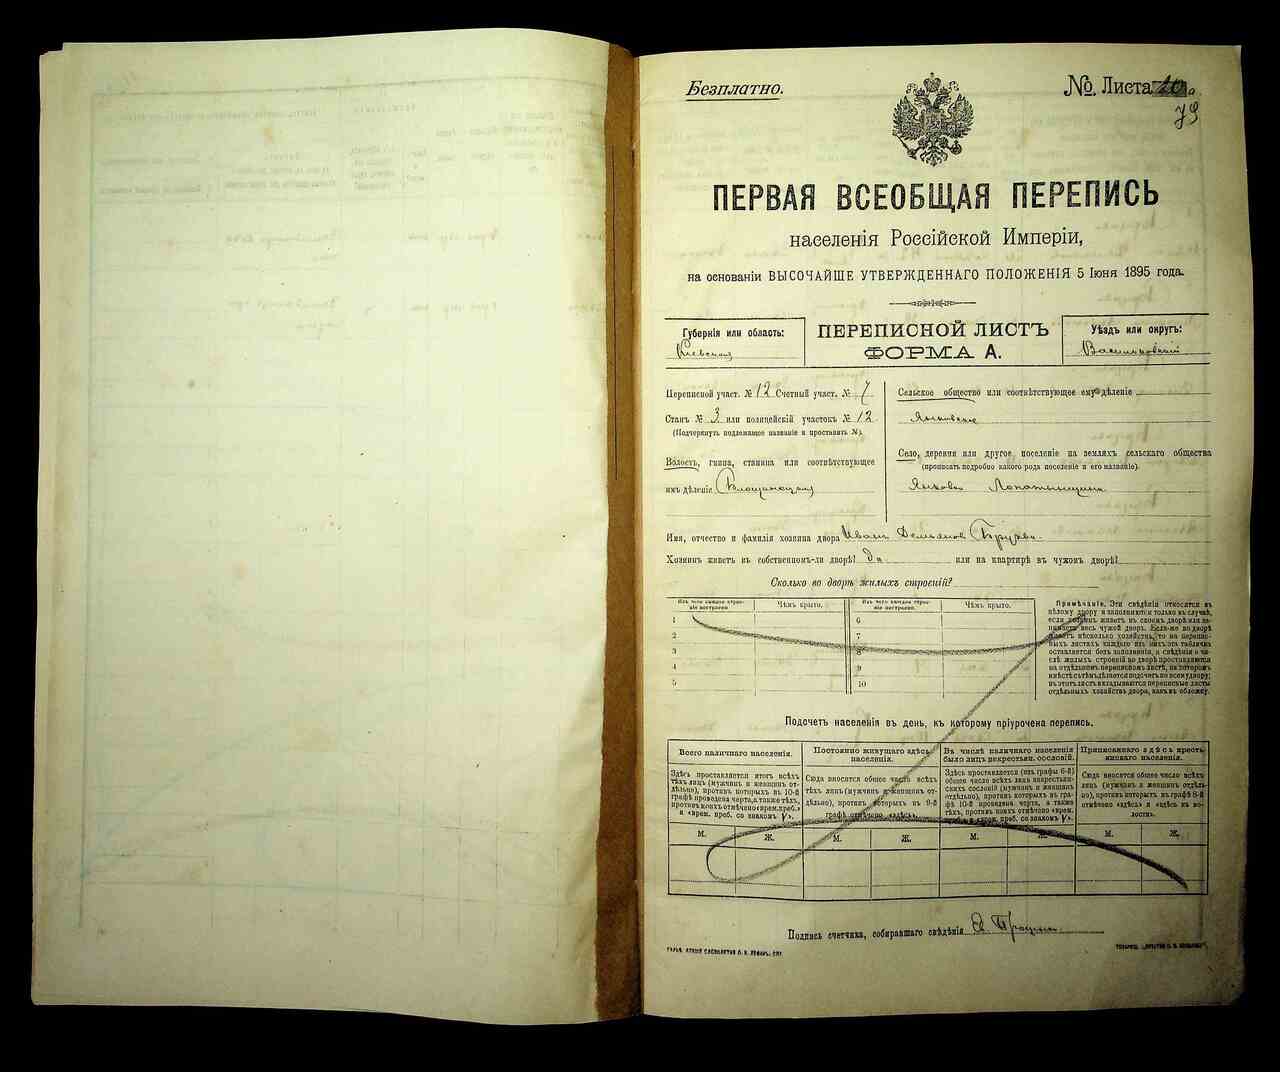 Безплатно.
№ Листа
79
ПЕРВАЯ ВСЕОБЩАЯ ПЕРЕПИСЬ
населенія Россійской Имперіи,
на основаніи ВЫСОЧАЙШЕ УТВЕРЖДЕННАГО ПОЛОЖЕНІЯ 5 Іюня 1895 года.
Губернія или область:
Кіевская
ПЕРЕПИСНОЙ ЛИСТЪ
ФОРМА А.
Уѣздъ или округъ:
Васильковскій
Переписной участ. № 12 Счетный участ. № 7
Станъ № 3 или полицейскій участокъ № 12
(Подчеркнуть подлежащее названіе и проставить №).
Волость, гмина, станица или соотвѣтствующее
имъ дѣленіе
Сельское общество или соотвѣтствующее ему дѣленіе
Село, деревня или другое поселеніе на земляхъ сельскаго общества
(прописать подробно какого рода поселеніе и его названіе).
Имя, отчество и фамилія хозяина двора Иванъ Демьяновъ
Хозяинъ живетъ въ собственномъ-ли дворѣ? Да или на квартирѣ въ чужомъ дворѣ?
Сколько во дворѣ жилыхъ строеній?
Изъ чего каждое строеніе построено.
Чѣмъ крыто.
Изъ чего каждое строеніе построено.
Чѣмъ крыто.
1
2
3
4
5
6
7
8
9
10
Примѣчаніе. Эти свѣдѣнія относятся къ
цѣлому двору и заполняются только въ случаѣ,
если хозяинъ живетъ въ своемъ дворѣ или за-
нимаетъ весь чужой дворъ. Если-же во дворѣ
живетъ нѣсколько хозяйствъ, то на перепис-
ныхъ листахъ каждаго изъ нихъ эта табличка
оставляется безъ заполненія, а свѣдѣнія о чи-
слѣ жилыхъ строеній во дворѣ проставляются
на отдѣльномъ переписномъ листѣ, на которомъ
вмѣстѣ съ тѣмъ дѣлается подсчетъ по всему двору;
въ этотъ листъ вкладываются переписные листы
отдѣльныхъ хозяйствъ двора, какъ въ обложку.
Подсчетъ населенія въ день, къ которому пріурочена перепись.
Всего наличнаго населенія.
Здѣсь проставляется итогъ всѣхъ
лицъ (мужчинъ и женщинъ от-
дѣльно), противъ которыхъ въ 10-й
графѣ проведена черта, а также тѣхъ,
противъ коихъ отмѣчено «врем. преб.»
и «врем. преб. со знакомъ V».
Постоянно живущаго здѣсь
населенія.
Сюда вносится общее число всѣхъ
тѣхъ лицъ (мужчинъ и женщинъ от-
дѣльно), противъ которыхъ въ 9-й
графѣ отмѣчено «здѣсь».
Въ числѣ наличнаго населенія
было лицъ некрестьян. сословій.
Здѣсь проставляется (изъ графы 6-й)
общее число всѣхъ лицъ некрестьян-
скихъ сословій (мужчинъ и женщинъ
отдѣльно), противъ которыхъ въ гра-
фѣ 10-й проведена черта, а также
тѣхъ, противъ коихъ отмѣчено «врем.
преб. и «врем. преб. со знакомъ V».
Приписаннаго здѣсь кресть-
янскаго населенія.
Сюда вносится общее число всѣхъ
лицъ (мужчинъ и женщинъ отдѣль-
но), противъ которыхъ въ графѣ 8-й
отмѣчено «здѣсь» и «здѣсь въ во-
лости».
М. Ж. М. Ж. М. Ж. М. Ж.
Подпись счетчика, собиравшаго свѣдѣнія